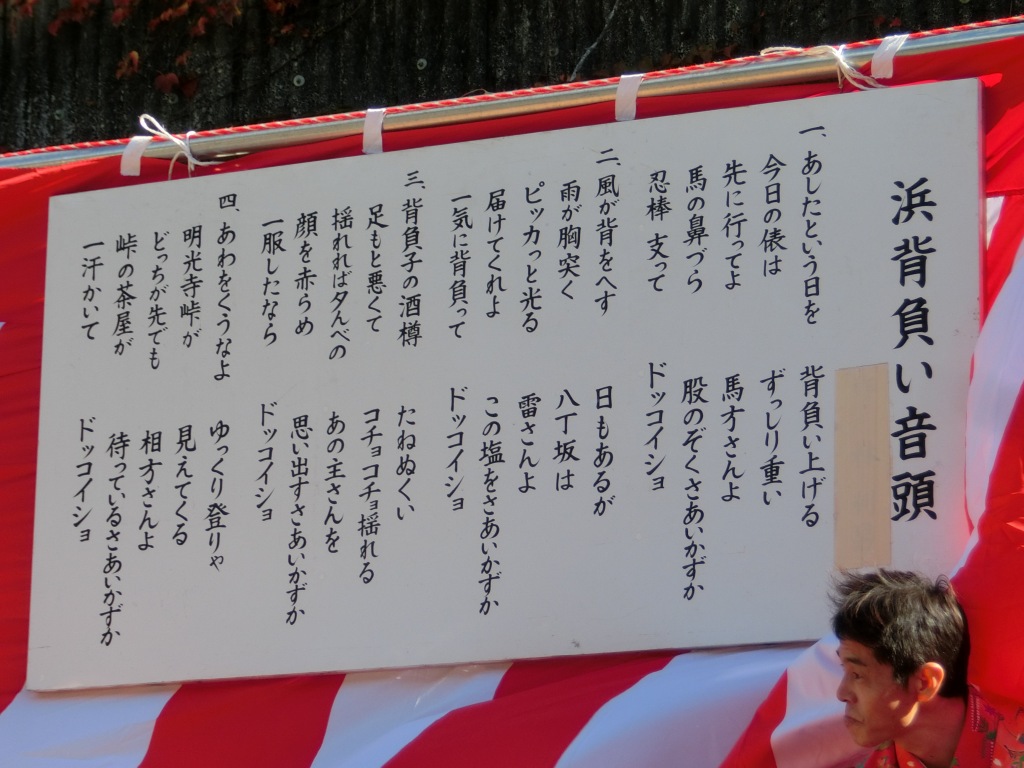 浜背負い音頭
一、あしたという日を 背負い上げる
今日の俵は ずっしり重い
先に行ってよ 馬方さんよ
馬の鼻づら 股のぞくさあいかずか
忍棒 支って ドッコイショ
二、風が背をへす 日もあるが
雨が胸突く 八丁坂は
ピッカっと光る 雷さんよ
届けてくれよ この塩をさあいかずか
一気に背負って ドッコイショ
三、背負子の酒樽 たねぬくい
足もと悪くて コチョコチョ揺れる
揺れれば夕んべの あの主さんを
顔を赤らめ 思い出すさあいかずか
一服したなら ドッコイショ
四、あわをくうなよ ゆっくり登りゃ
明光寺峠が 見えてくる
どっちが先でも 相方さんよ
峠の茶屋が 待っているさあいかずか
一汗かいて ドッコイショ